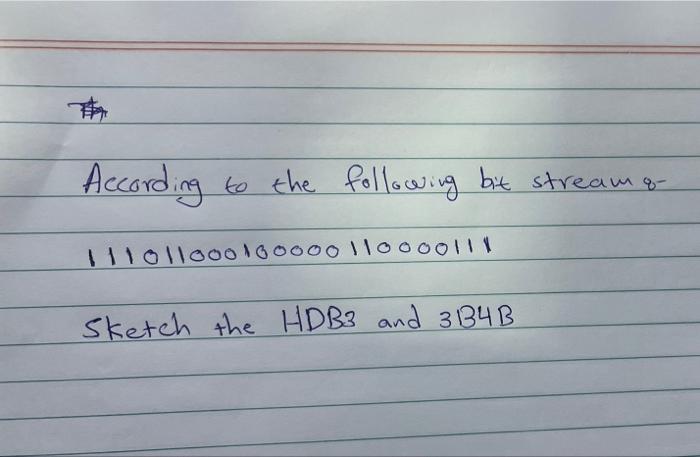 According to the following bit stream :-
111011000100000110000111
Sketch the HDB3 and 3B4B